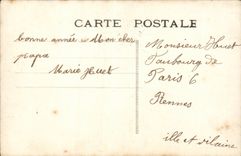 CARTE POSTALE
bonne année à Mon cher
papa
Marie Huet
Monsieur Huet
Faubourg de
Paris 6
Rennes
ille et vilaine